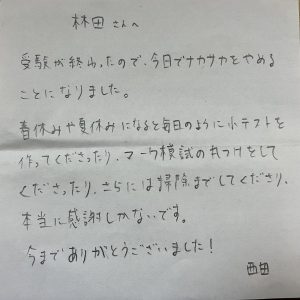 林田さんへ
受験が終わったので、今日でナカサカをやめる
ことになりました。
春休みや夏休みになると毎日のように小テストを
作ってくださったり、マーク模試の丸つけをして
くださったり、さらには掃除までしてくださり、
本当に感謝しかないです。
今までありがとうございました!
西田